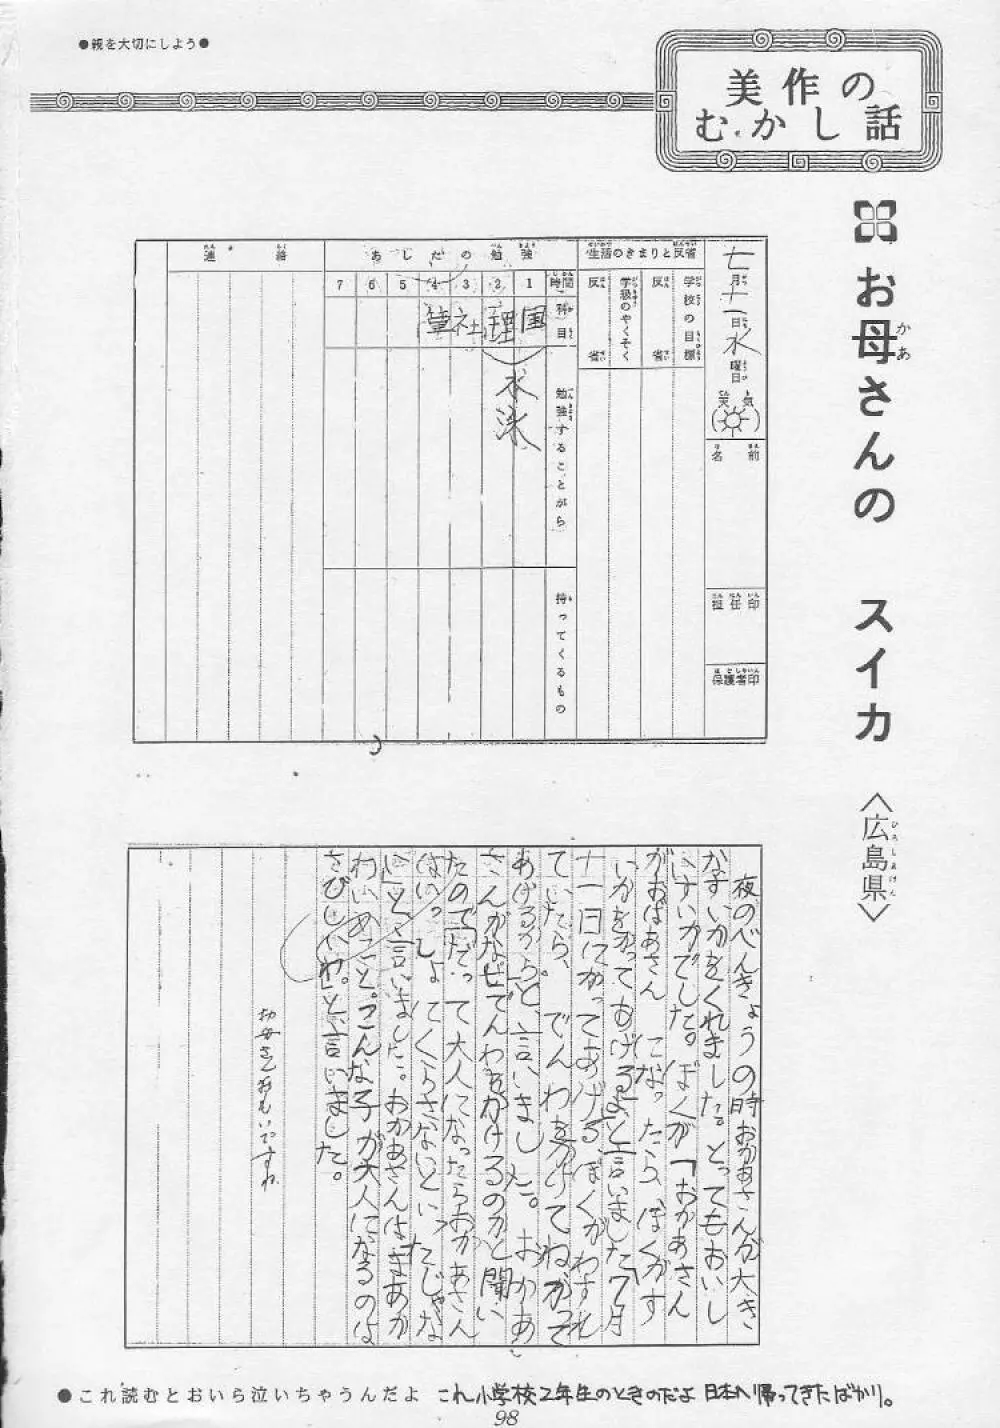 ●親を大切にしよう●
美作の
むかし話
お母さんの スイカ
かあ
〈広島県〉
ひろしまけん
七月十一日水曜日
天気
名前
担任印
保護者印
生活のきまりと反省
学校の目標
反省
学級のやくそく
反省
あしたの勉強
時間 1 2 3 4 5 6 7
科目 国 理 社 筆
水泳
勉強することがら
持ってくるもの
連絡
夜のべんきょうの時おかあさんが大き
なすいかをくれました。とってもおいし
いすいかでした。ぼくが「おかあさん
がおばあさんになったら、ぼくがす
いかをかってあげるよと言いました7月
十一日にかってあげる、ぼくがわすれ
ていたら、でんわをかけてねかって
あげるからと、言いました。おかあ
さんがなぜでんわをかけるのかと聞い
たので「だって大人になったらおかあさん
はいっしょにくらさないといったじゃな
い」と言いました。おかあさんはまあか
わいいこと。こんな子が大人になるのは
さびしいわ。と、言いました。
お母さんおもいですね
●これ読むとおいら泣いちゃうんだよ これ小学校2年生のときのだよ 日本へ帰ってきたばかり。
98